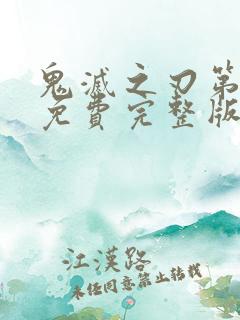 鬼滅之刃第
免費完整版
江漢路
未經同意禁止轉載